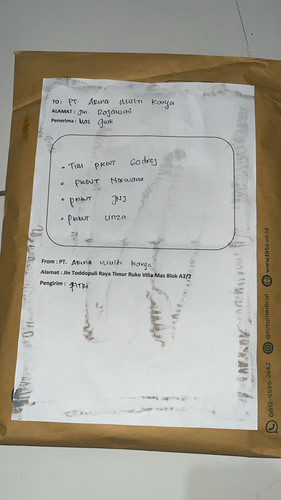 TO: PT. Aruna Multi Karya
ALAMAT: Jln. Rajawali
Penerima: Mas
• Tim PKWT Godrej
• PKWT Nirwana
• PKWT JNJ
• PKWT UNZA
From : PT. Aruna Multi Karya
Alamat : Jln Toddopuli Raya Timur Ruko Villa Mas Blok A3/2
Pengirim : Fitri
0812-9595-2662